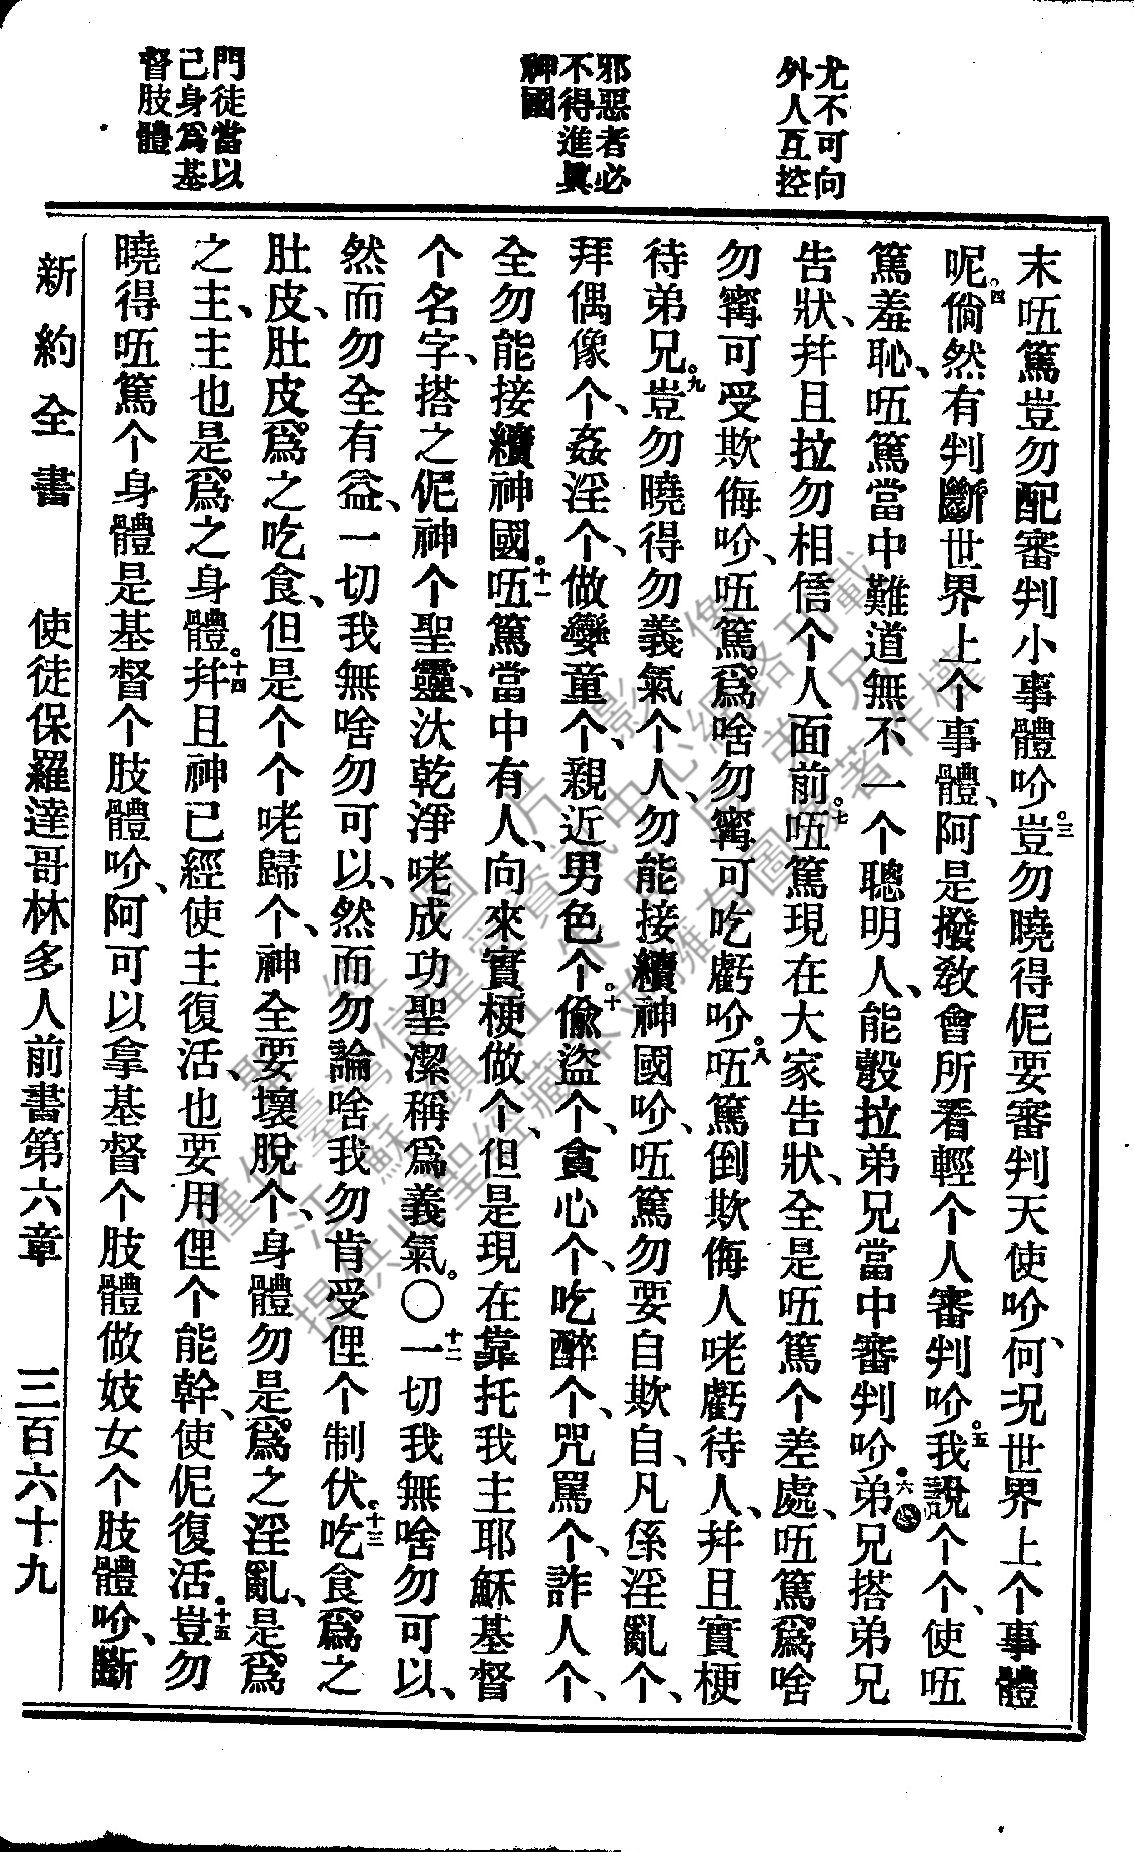 尤不可向
外人互控
邪惡者必
不得進眞
神國
門徒當以
己身爲基
督肢體
末㕶篤豈勿配審判小事體吤。三豈勿曉得伲要審判天使吤、何况世界上个事體
呢。四倘然有判斷世界上个事體、阿是撥敎會所看輕个人審判吤。五我說个个、使㕶
篤羞恥、㕶篤當中難道無不一个聰明人、能彀拉弟兄當中審判吤。六弟兄搭弟兄
告狀、幷且拉勿相信个人面前。七㕶篤現在大家告狀、全是㕶篤个差處、㕶篤爲啥
勿寗可受欺侮吤、㕶篤爲啥勿寗可吃虧吤。八㕶篤倒欺侮人咾虧待人、幷且實梗
待弟兄。九豈勿曉得勿義氣个人、勿能接續神國吤、㕶篤勿要自欺自、凡係淫亂个、
拜偶像个、姦淫个、做孌童个、親近男色个。十偸盜个、貪心个、吃醉个、咒罵个、詐人个、
全勿能接續神國。十一㕶篤當中有人、向來實梗做个、但是現在靠托我主耶穌基督
个名字、搭之伲神个聖靈、汏乾淨咾成功聖潔稱爲義氣。〇十二一切我無啥勿可以、
然而勿全有益、一切我無啥勿可以、然而勿論啥我勿肯受俚个制伏。十三吃食爲之
肚皮、肚皮爲之吃食、但是个个咾歸个、神全要壞脫个、身體勿是爲之淫亂、是爲
之主、主也是爲之身體。十四幷且神已經使主復活、也要用俚个能幹、使伲復活。十五豈勿
曉得㕶篤个身體是基督个肢體吤、阿可以拿基督个肢體做妓女个肢體吤、斷
新約全書 使徒保羅達哥林多人前書第六章 三百六十九
聖經圖片影像
僅供臺灣信望愛資訊中心網路刊載
提供此聖經藏本並擁有圖象著作權